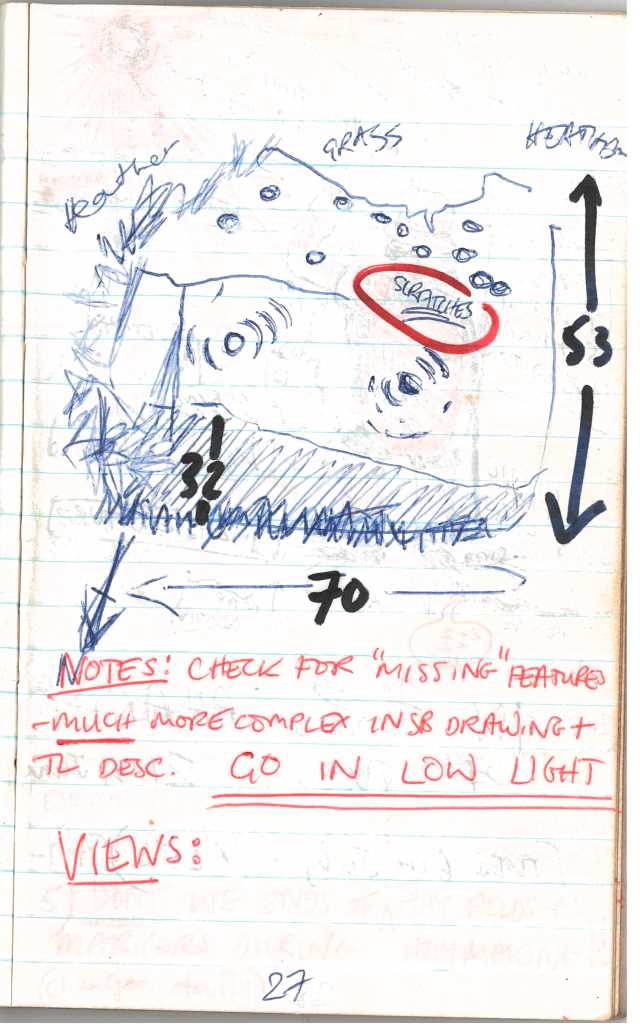 GRASS
HEATHER
Heather
SCRATCHES
53
32
70
N
NOTES: CHECK FOR "MISSING" FEATURES
- MUCH MORE COMPLEX IN SB DRAWING +
TL DESC. GO IN LOW LIGHT
VIEWS:
5) DON'T
MARKERS DURING
27